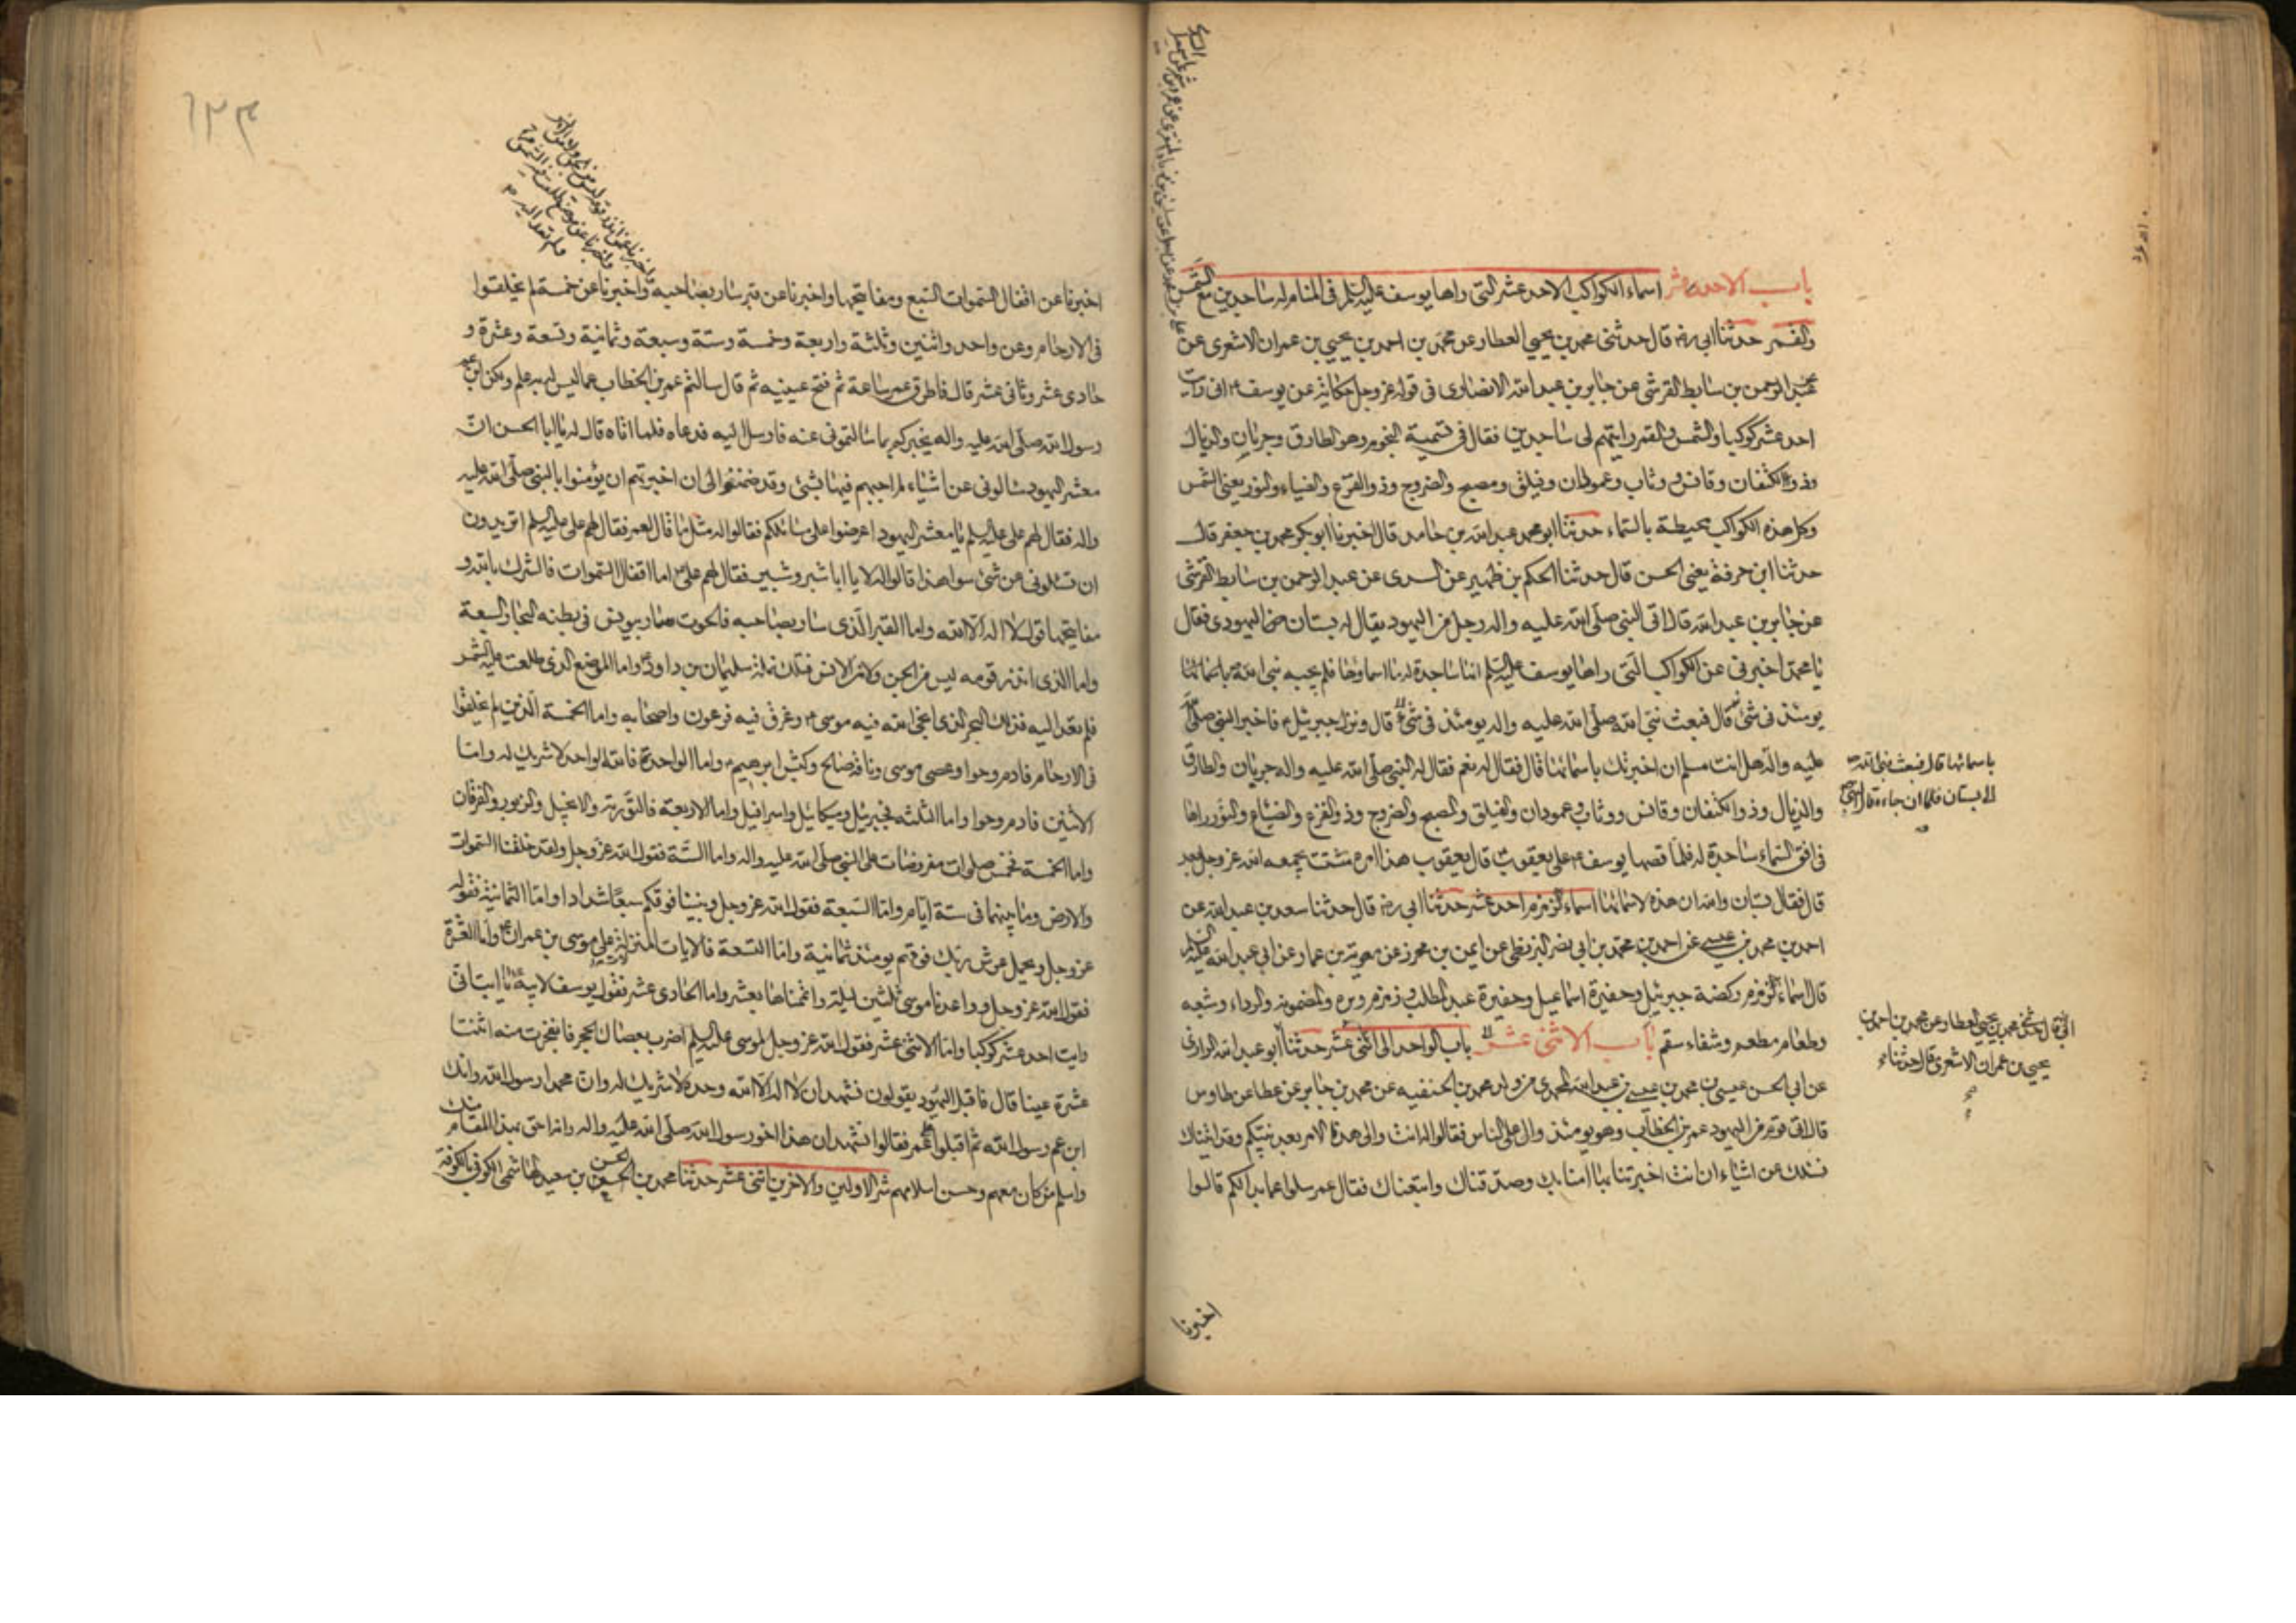 باب الاحد عشر اسماء الكواكب الاحد عشر التى راها يوسف عليه السلم فى المنام له ساجدين مع الشمس
والقمر حدثنا ابى ره قال حدثنى محمد بن يحيى العطار عن محمد بن احمد بن يحيى بن عمران الاشعرى عن
عبد الرحمن بن سابط القرشى عن جابر بن عبد الله الانصارى فى قوله عز وجل حكاية عن يوسف ع انى رايت
احد عشر كوكبا والشمس والقمر رايتهم لى ساجدين فقال فى تسمية النجوم وهو الطارق وجربان والذيال
وذو الكنفان وقابس ووثاب وعمودان وفيلق ومصبح والضروح وذو القرع والضياء والنور يعنى الشمس
وكل هذه الكواكب محيطة بالسماء حدثنا ابو محمد عبد الله بن حامد قال اخبرنا ابو بكر محمد بن جعفر قال
حدثنا ابن عرفة يعنى الحسن قال حدثنا الحكم بن ظهير عن السدى عن عبد الرحمن بن سابط القرشى
عن جابر بن عبد الله قال اتى النبى صلى الله عليه واله رجل من اليهود يقال له بستان اليهودى فقال
يا محمد اخبرنى عن الكواكب التى راها يوسف عليه السلم انها ساجدة له ما اسماوها فلم يجبه نبى الله باسمائها
يومئذ فى شئ قال فبعث نبى الله صلى الله عليه واله يومئذ فى شئ قال ونزل جبرئيل ع فاخبر النبى صلى الله
عليه واله هل انت مسلم ان اخبرتك باسمائها قال فقال له نعم فقال له النبى صلى الله عليه واله جربان والطارق
والذيال وذو الكنفان وقابس ووثاب وعمودان والفيلق والمصبح والضروح وذو القرع والضياء والنور راها
فى افق السماء ساجدة له فلما قصها يوسف ع على يعقوب ع قال يعقوب هذا امر متشتت يجمعه الله عز وجل بعد
قال فقال بستان والله ان هذه لاسمائها اسماء لزمزم احد عشر حدثنا ابى ره قال حدثنا سعد بن عبد الله عن
احمد بن محمد بن عيسى عن احمد بن محمد بن ابى نصر البزنطى عن ايمن بن محرز عن معوية بن عمار عن ابى عبد الله عليه السلم
قال اسماء زمزم ركضة جبرئيل وحفيرة اسماعيل وحفيرة عبد المطلب وزمزم وبره والمضمونه والرداء وشبعه
وطعام ومطعم وشفاء سقم باب الاثنى عشر باب الواحد الى اثنى عشر حدثنا ابو عبد الله الرازى
عن ابى الحسن عيسى بن محمد بن عيسى بن عبد الله المحمدى من ولد محمد بن الحنفيه عن محمد بن جابر عن عطا عن طاوس
قال اتى قوم من اليهود عمر بن الخطاب وهو يومئذ وال على الناس فقالوا له انت والى هذا الامر بعد نبيكم وقد اتيناك
نسئلك عن اشياء ان انت اخبرتنا بها امنا بك وصدقناك واتبعناك فقال عمر سلوا عما بدا لكم قالوا
باسمائها قال فبعث نبى الله
الى بستان فلما ان جاءه قال النبى ص
محمد بن يحيى العطار عن محمد بن احمد بن
يحيى بن عمران الاشعرى قال حدثنا
اخبرنا
١٢٣
اخبرنا عن اقفال السموات السبع ومفاتيحها واخبرنا عن قبر سار بصاحبه واخبرنا عن خمسة لم يخلقوا
فى الارحام وعن واحد واثنين وثلثة واربعة وخمسة وستة وسبعة وثمانية وتسعة وعشرة و
حادى عشر وثانى عشر قال فاطرق عمر ساعة ثم فتح عينيه ثم قال سالتم عمر بن الخطاب عما ليس له به علم ولكن ابن عم
رسول الله صلى الله عليه واله يخبركم بما سالتمونى عنه فارسل اليه فدعاه فلما اتاه قال له يا ابا الحسن ان
معشر اليهود سالونى عن اشياء لم اجبهم فيها بشئ وقد ضمنوا لى ان اخبرتهم ان يؤمنوا بالنبى صلى الله عليه
واله فقال لهم على عليه السلم يا معشر اليهود اعرضوا على مسائلكم فقالوا له مثل ما قالوا لعمر فقال لهم على عليه السلم اتريدون
ان تسئلونى عن شئ سوا هذا قالوا لا يا ابا شبر وشبير فقال لهم على ع اما اقفال السموات فالشرك بالله و
مفاتيحها قول لا اله الا الله واما القبر الذى سار بصاحبه فالحوت سار بيونس فى بطنه البحار السبعة
واما الذى انذر قومه ليس من الجن ولا من الانس فتلك نملة سليمان بن داود واما الموضع الذى طلعت عليه الشمس
فلم تعد اليه فذاك البحر الذى انجى الله فيه موسى ع وغرق فيه فرعون واصحابه واما الخمسة الذين لم يخلقوا
فى الارحام فادم وحوا وعصى موسى وناقة صالح وكبش ابرهيم ع واما الواحد فالله الواحد لا شريك له واما
الاثنين فادم وحوا واما الثلثة فجبرئيل وميكائيل واسرافيل واما الاربعة فالتورية والانجيل والزبور والفرقان
واما الخمسة فخمس صلوات مفروضات على النبى صلى الله عليه واله واما الستة فقول الله عز وجل ولقد خلقنا السموات
والارض وما بينهما فى ستة ايام واما السبعة فقول الله عز وجل وبنينا فوقكم سبعا شدادا واما الثمانية فقوله
عز وجل ويحمل عرش ربك فوقهم يومئذ ثمانية واما التسعة فالايات المنزلة على موسى بن عمران ع واما العشرة
فقول الله عز وجل وواعدنا موسى ثلثين ليلة واتممناها بعشر واما الحادى عشر فقول يوسف لابيه ع يا ابت انى
رايت احد عشر كوكبا واما الاثنى عشر فقول الله عز وجل لموسى عليه السلم اضرب بعصاك الحجر فانفجرت منه اثنتا
عشرة عينا قال فاقبل اليهود يقولون نشهد ان لا اله الا الله وحده لا شريك له وان محمدا رسول الله وانك
ابن عم رسول الله ثم اقبلوا على عمر فقالوا نشهد ان هذا اخو رسول الله صلى الله عليه واله وانه احق بهذا المقام منك
واسلم من كان معهم وحسن اسلامهم شر الاولين والاخرين اثنى عشر حدثنا محمد بن الحسن بن سعيد الهاشمى الكوفى بالكوفة